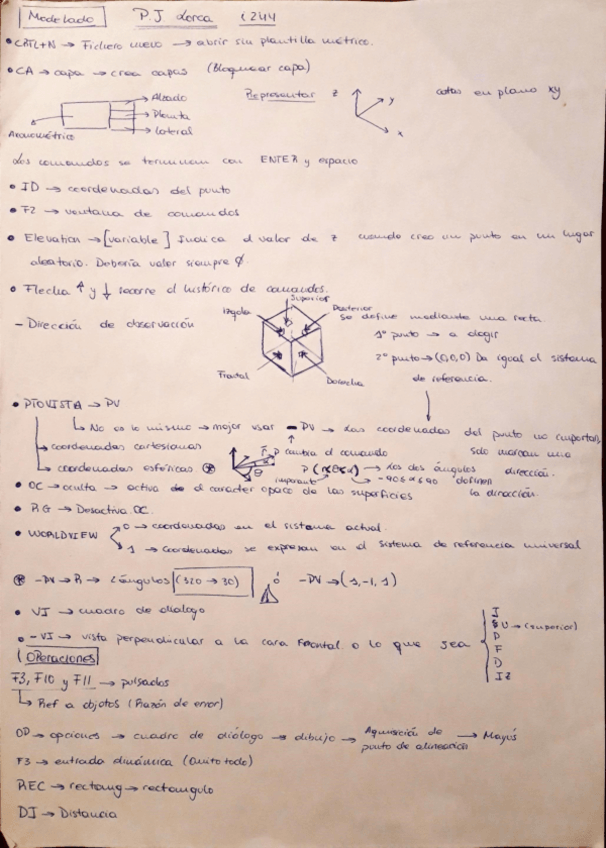 Modelado P.J. Lorca C244
• CRTL+N → Fichero nuevo → abrir sin plantilla métrico.
• CA → capa → crea capas (Bloquear capa)
→ Alzado
→ Planta
→ Lateral
Axonométrico
Representar z y x cotas en plano xy
Los comandos se terminan con ENTER y espacio
• ID → coordenadas del punto
• F2 → ventana de comandos
• Elevation → [variable] Indica el valor de z cuando creo un punto en un lugar
aleatorio. Debería valer siempre 0.
• Flecha ↑ y ↓ recorre el histórico de comandos.
- Dirección de observación
Superior
Izqda
Posterior
Frontal
Derecha
Se define mediante una recta
1º punto → a elegir
2º punto → (0,0,0) Da igual el sistema
de referencia.
• PTOVISTA → PV
↳ No es lo mismo → mejor usar - PV → Las coordenadas del punto no importan,
cambia el comando solo marcan una
→ coordenadas cartesianas
→ coordenadas esféricas
importante
→ Los dos ángulos dirección.
definen
la dirección.
• OC → oculta → activa el caracter opaco de las superficies
• RG → Desactiva OC.
• WORLDVIEW
0 → coordenadas en el sistema actual.
1 → Coordenadas se expresan en el sistema de referencia universal
-PV → R → 2 ángulos (320 → 30) ó -PV → (1,-1,1)
• VI → cuadro de diálogo
• -VI → vista perpendicular a la cara frontal o lo que sea
I
S U → (superior)
P
F
D
IZ
Operaciones
F3, F10 y F11 → pulsados
↳ Ref a objetos (Razón de error)
OP → opciones → cuadro de diálogo → dibujo → Adquisición de
punto de alineación
→ Mayús
F3 → entrada dinámica (Quito todo)
REC → rectang → rectangulo
DI → Distancia